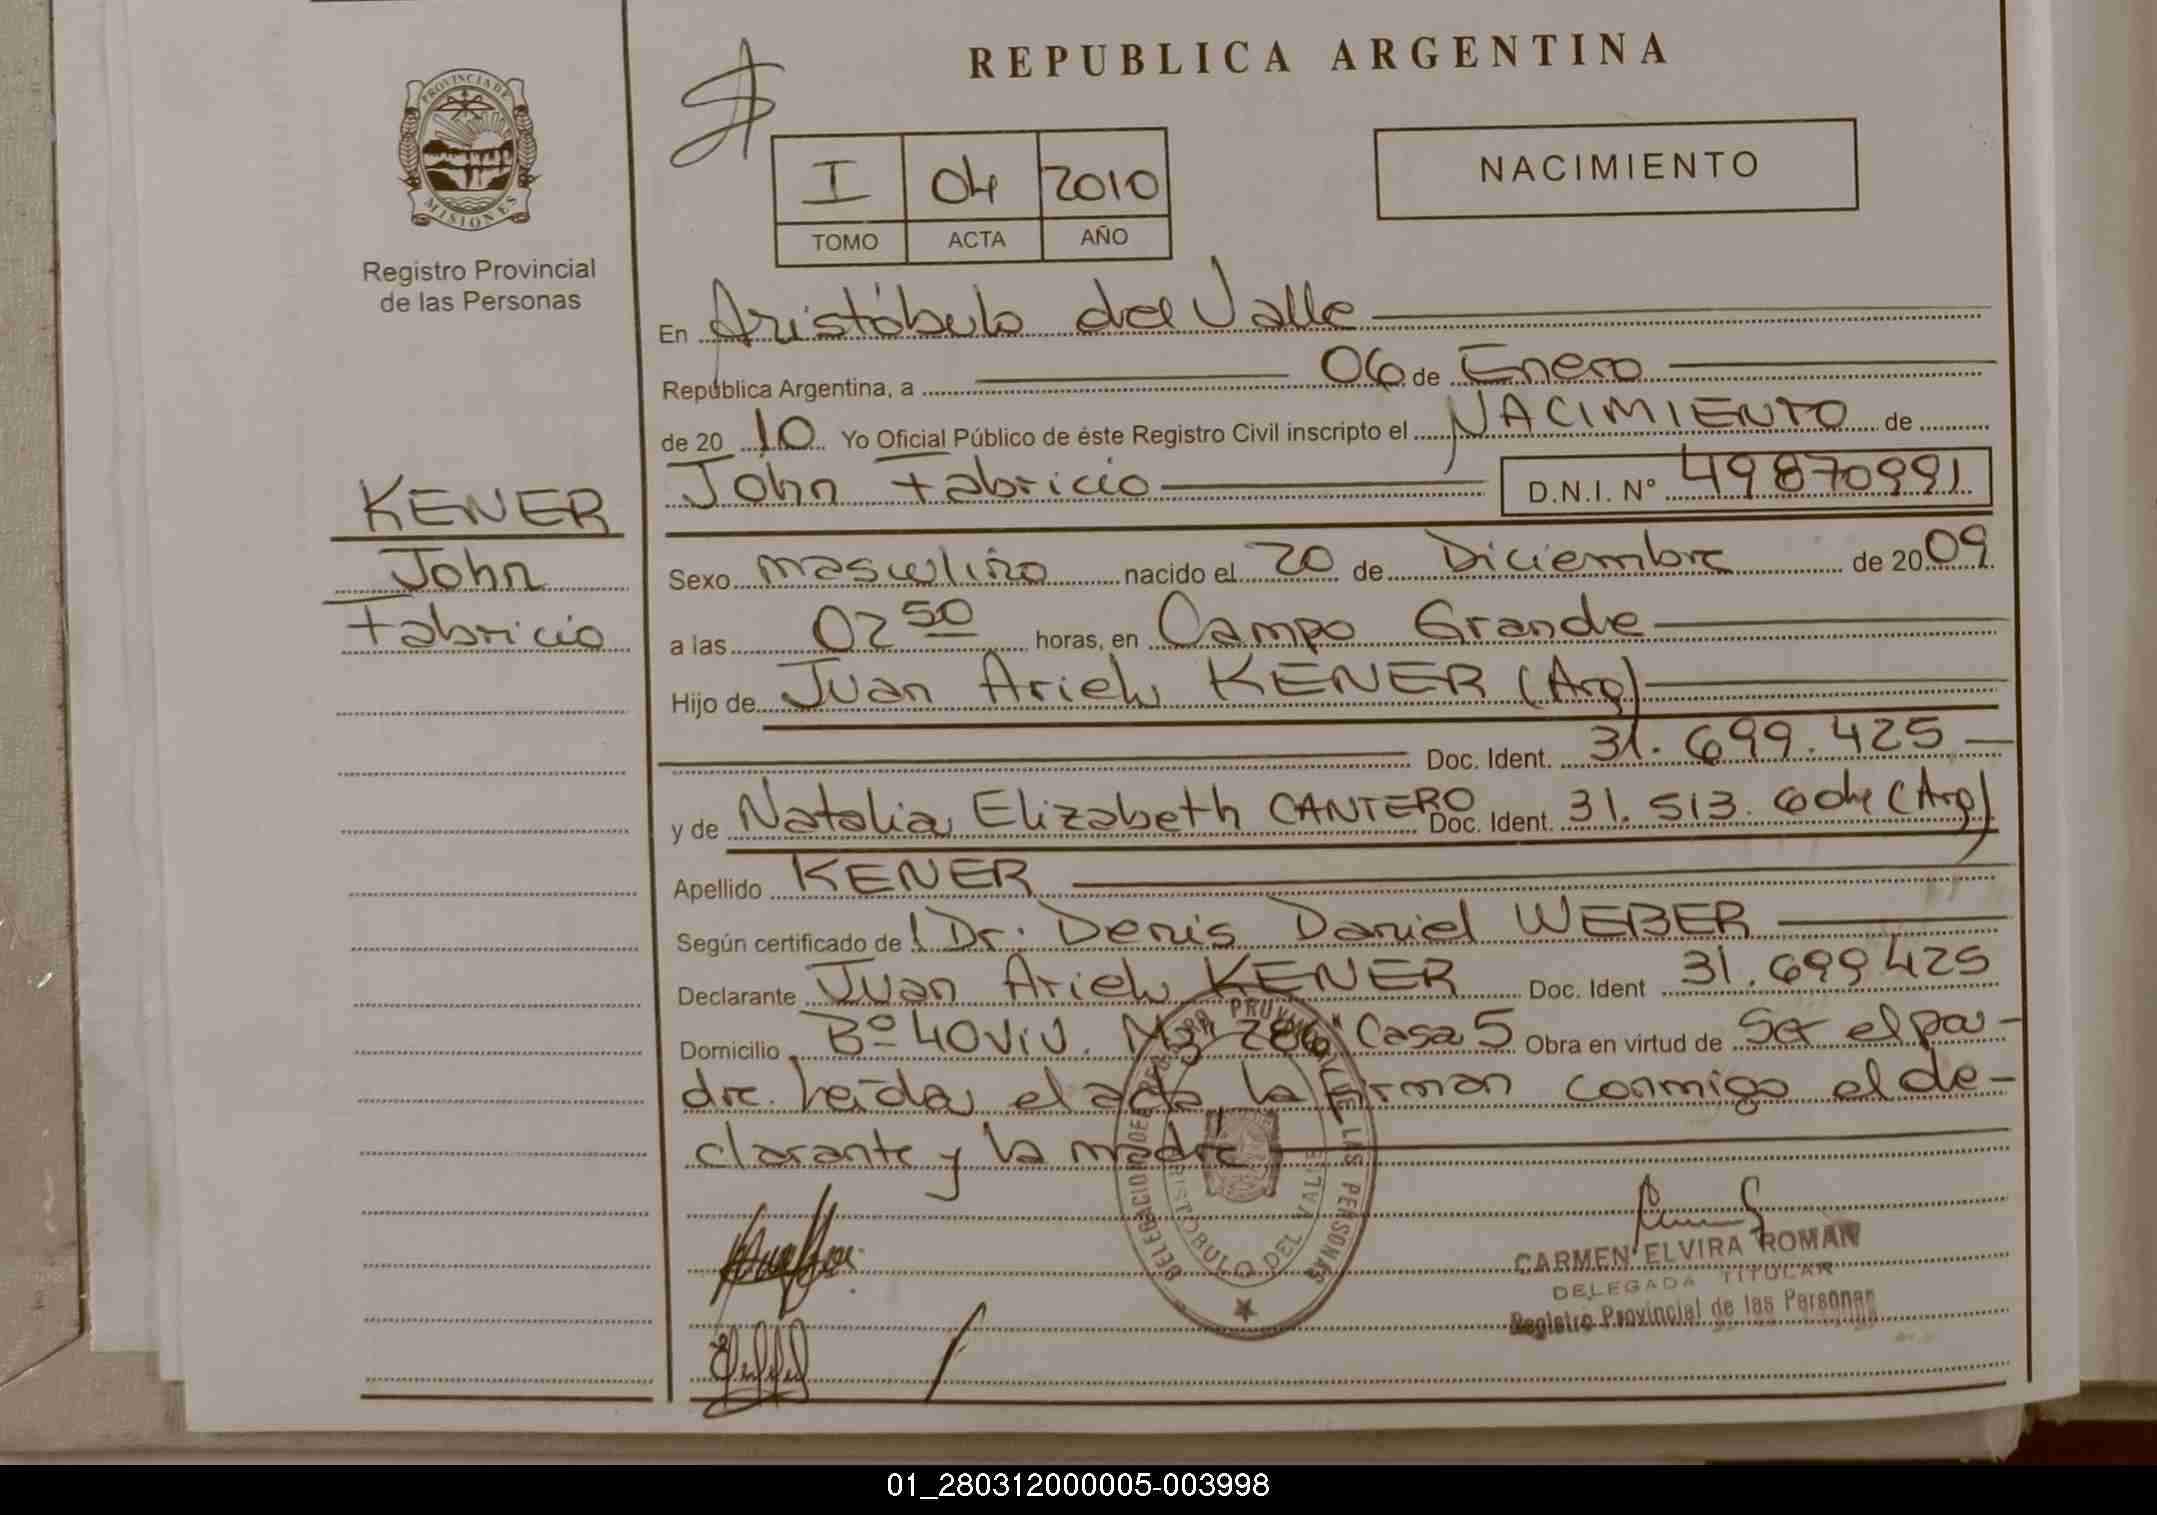 REPUBLICA ARGENTINA
PROVINCIA DE MISIONES
Registro Provincial
de las Personas
I 04 2010
TOMO ACTA AÑO
NACIMIENTO
KENER
John
Fabricio
En Aristóbulo del Valle
República Argentina, a 06 de Enero
de 20 10 Yo Oficial Público de éste Registro Civil inscripto el NACIMIENTO de
John Fabricio D.N.I. Nº 49870991
Sexo masculino nacido el 20 de Diciembre de 2009
a las 02 50 horas, en Campo Grande
Hijo de Juan Ariel KENER (Arg)
Doc. Ident. 31.699.425
y de Natalia Elizabeth CANTERO Doc. Ident. 31.513.604 (Arg)
Apellido KENER
Según certificado de Dr. Denis Daniel WEBER
Declarante Juan Ariel KENER Doc. Ident 31.699425
Domicilio Bº 40 Viv. Mz "286" Casa 5 Obra en virtud de Ser el pa-
dre. Leída el acta la firman conmigo el de-
clarante y la madre
DELEGACION DE PROVINCIAL DE LAS PERSONAS
ARISTOBULO DEL VALLE
CARMEN ELVIRA ROMAN
DELEGADA TITULAR
Registro Provincial de las Personas
01_280312000005-003998